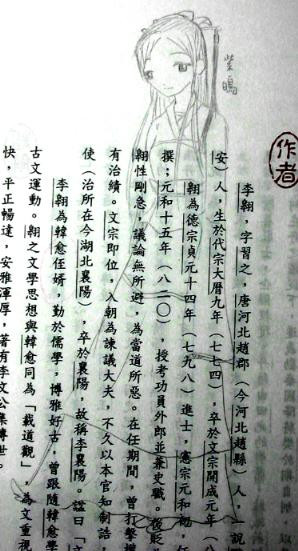 作者
李翱，字習之，唐河北趙郡（今河北趙縣）人，一說
安）人，生於代宗大曆九年（七七四），卒於文宗開成元年（
翱為德宗貞元十四年（七九八）進士，憲宗元和初，任
撰；元和十五年（八二○），授考功員外郎並兼史職。後貶
翱性剛急，議論無所避，為當道所惡。在任期間，曾打擊權
有治績。文宗即位，入朝為諫議大夫，不久以本官知制誥，
使（治所在今湖北襄陽），卒於襄陽，故稱李襄陽。諡曰「文
李翱為韓愈侄婿，勤於儒學，博雅好古，曾跟隨韓愈學
古文運動。翱之文學思想與韓愈同為「載道觀」，為文重視
快，平正暢達，安雅渾厚，著有李文公集傳世。
紫鳴